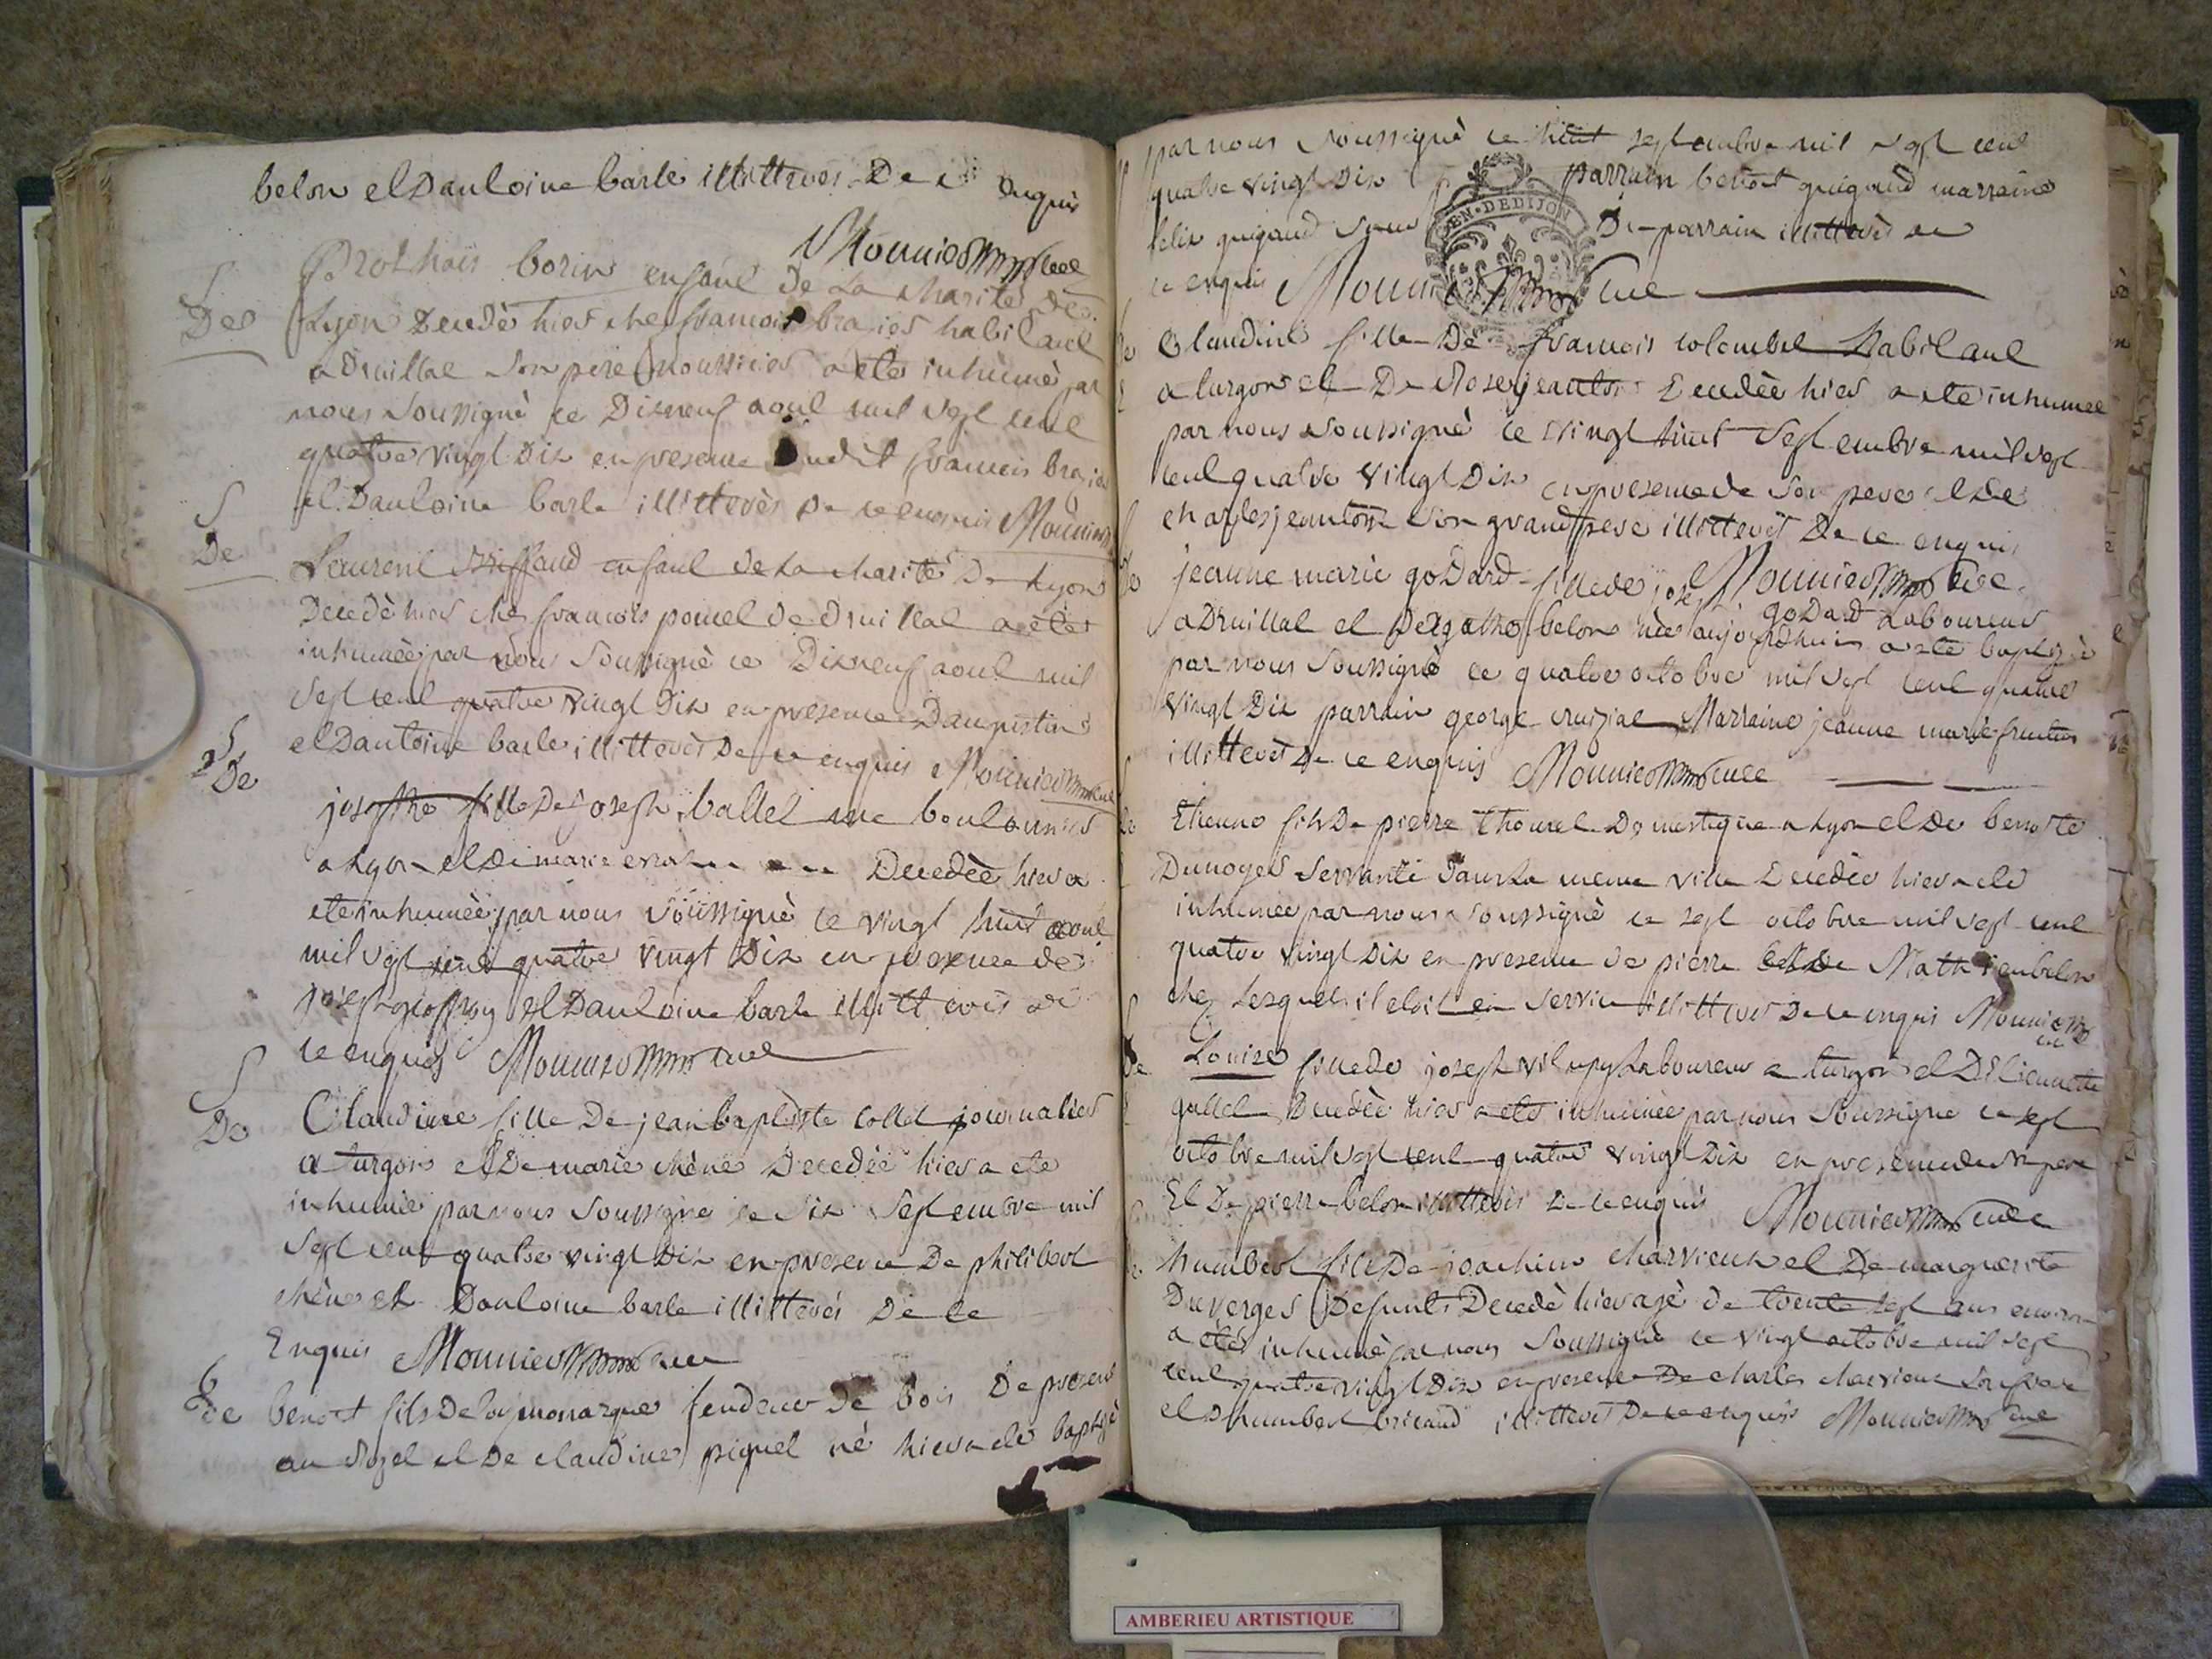 belon et Dantoine barle illitterés De ce enquis
Mounier cure
Prothais borin enfant De La charité de
De Lyon Decedé hier chez francois brasier habitant
a Druillat son pere nourricier a eté inhumé par
nous soussigné ce Dixneuf aout mil sept cent
quatre vingt Dix en presence dudit francois brasier
et Dantoine barle illitterés De ce enquis Mounier
De Laurent enfant de La charité De Lyon
Decedé hier chez francois poncet de Druillat a eté
inhumée par nous soussigné ce Dixneuf aout mil
sept cent quatre vingt Dix en presence Daugustin
et Dantoine barle illitterés De ce enquis Mounier cure
De josephe fille De joseph ballet me boulanger
a Lyon et De marie Decedée hier a
eté inhumée par nous soussigné ce vingt huit aout
mil sept cent quatre vingt Dix en presence de
joseph geoffray et Dantoine barle illitterés de
ce enquis Mounier cure
De Claudine fille De jean baptiste collet journalier
a turgon et De marie chêne Decedée hier a eté
inhumée par nous soussigné ce Dix septembre mil
sept cent quatre vingt Dix en presence De philibert
chêne et Dantoine barle illitterés De ce
Enquis Mounier cure
De benoit fils De monarque fendeur De bois De present
au et De claudine piquet né hier a eté baptisé
par nous soussigné ce huit septembre mil sept cent
quatre vingt Dix parrain benoit guigard marraine
guigard De parrain illitterés de
ce enquis Mounier cure
EN·DEDIJON
Claudine fille De francois colombet habitant
a turgon et De Rose jeanton Decedée hier a eté inhumée
par nous soussigné ce vingt huit septembre mil sept
cent quatre vingt Dix en presence de son pere et de
charles jeanton son grand pere illitterés De ce enquis
Mounier cure
jeanne marie goDard fille de joseph goDard Laboureur
a Druillat et Dagathe belon née aujourdhuis a eté baptisée
par nous soussigné ce quatre octobre mil sept cent quatre
vingt Dix parrain george cruiziat Marraine jeanne marie
illitterés De ce enquis Mounier cure
Etienne fils De pierre thouret Domestique a Lyon et De benoite
Dunoyer servante Dans La meme ville Decedée hier a eté
inhumée par nous soussigné ce sept octobre mil sept cent
quatre vingt Dix en presence de pierre et de Mathieu belon
chez lesquels il etoit en service illitterés De ce enquis Mounier
cure
De Louise fille de joseph Laboureur a turgon et D'Etiennette
gallet Decedée hier a eté inhumée par nous soussigné ce sept
octobre mil sept cent quatre vingt Dix en presence de son pere
Et De pierre belon illitterés De ce enquis Mounier cure
humbert fils De joachim charvieux et De marguerite
Duverger Defunts Decedé hier agé de trente sept ans environ
a eté inhumé par nous soussigné ce vingt octobre mil sept
cent quatre vingt Dix en presence De charles charvieux son frere
et Dhumbert bricaud illitterés De ce enquis Mounier cure
AMBERIEU ARTISTIQUE